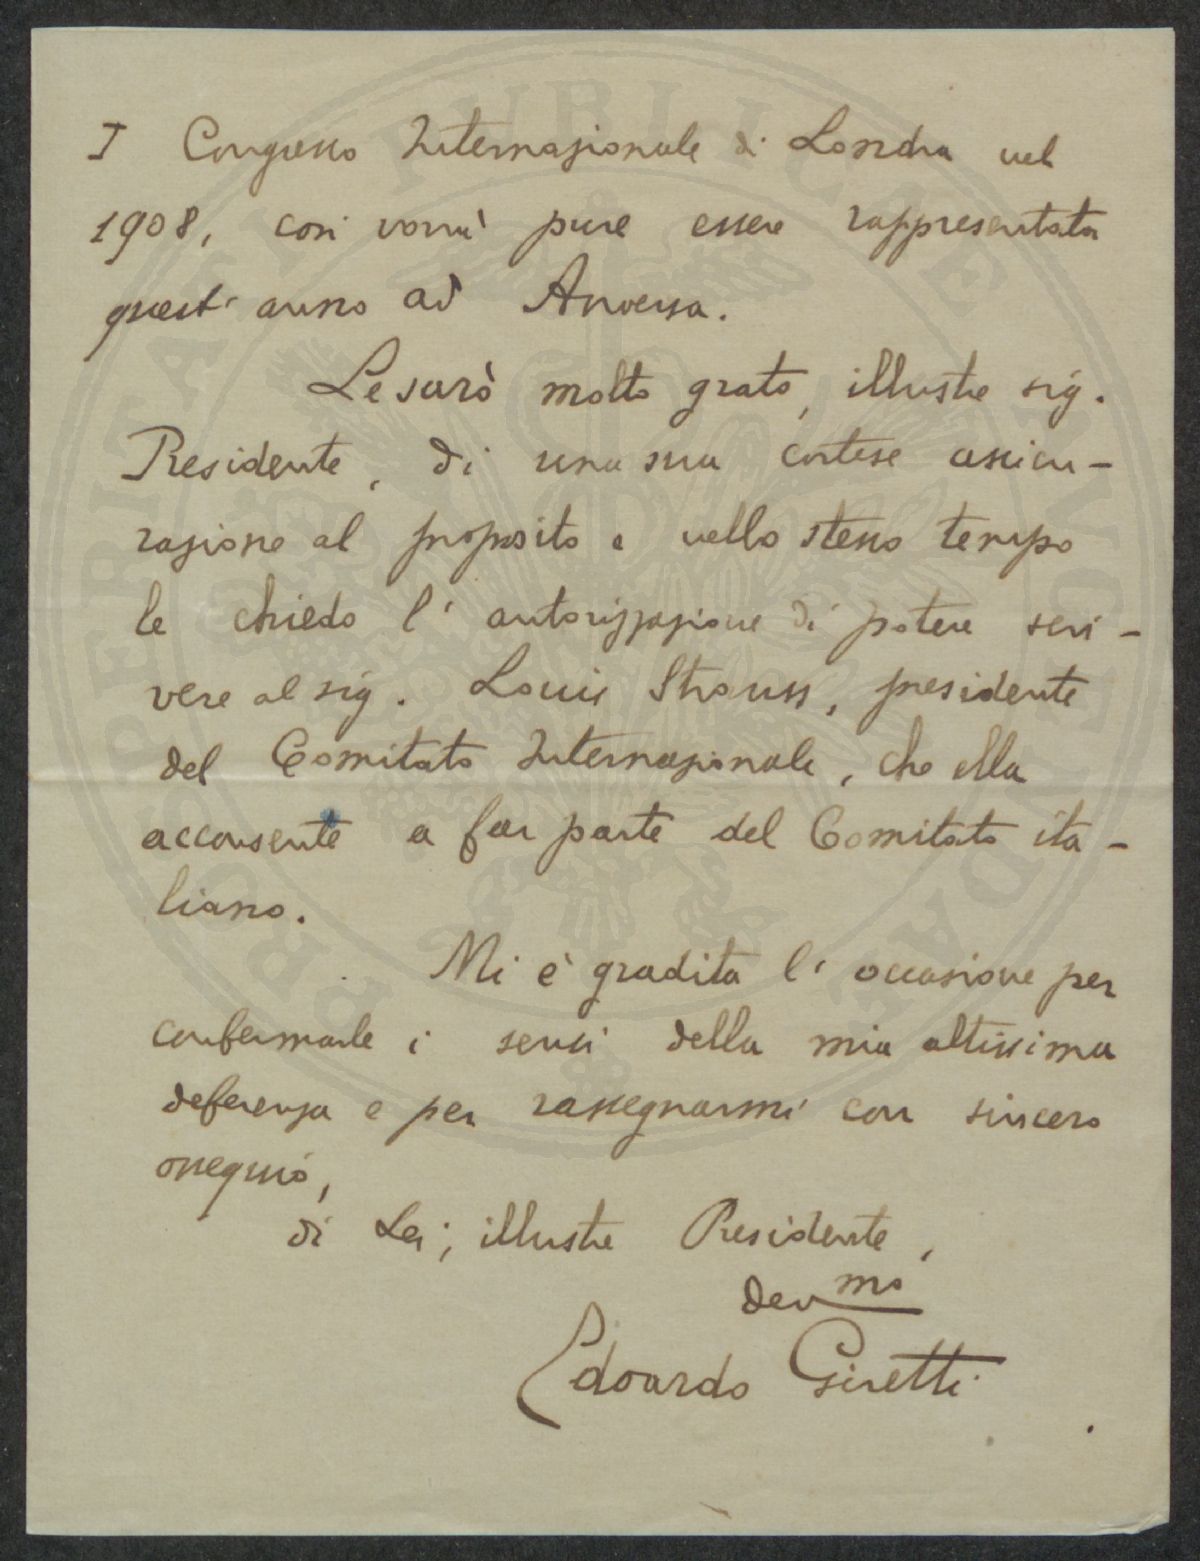 I Congresso Internazionale di Londra nel
1908, così vorrà pure essere rappresentata
quest' anno ad Anversa.
Le sarò molto grato, illustre sig.
Presidente, di una sua cortese assicu-
razione al proposito e nello stesso tempo
le chiedo l' autorizzazione di potere scri-
vere al sig. Louis Strauss, presidente
del Comitato Internazionale, che ella
acconsente a far parte del Comitato ita-
liano.
Mi è gradita l' occasione per
confermarle i sensi della mia altissima
deferenza e per rassegnarmi con sincero
ossequio,
di Lei, illustre Presidente,
dev.mo
Edoardo Giretti